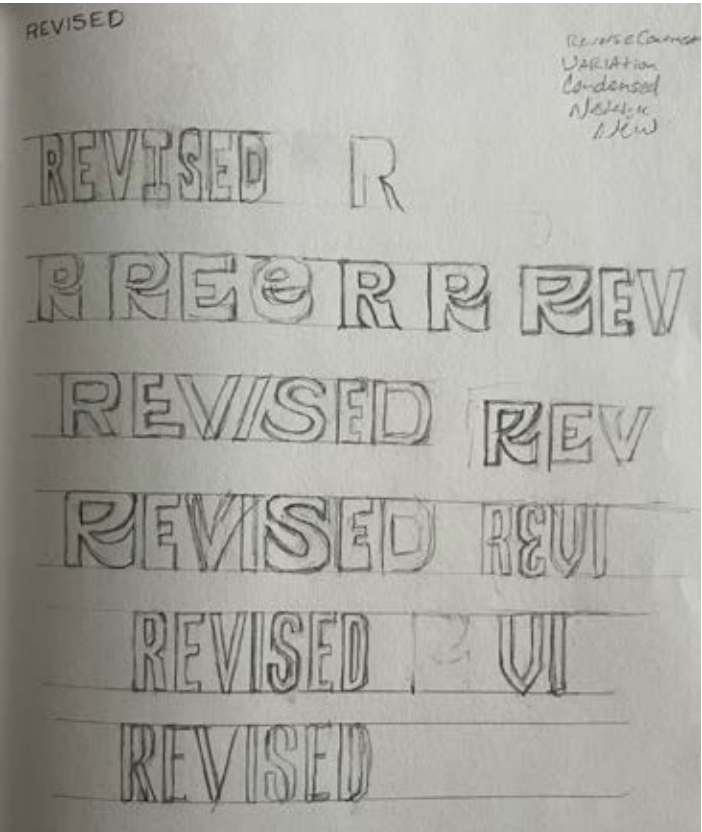 REVISED
Reverse Contrast
VARIATION
Condensed
NEW
REVISED R
R REe R R REV
REVISED REV
REVISED REVI
REVISED VI
REVISED